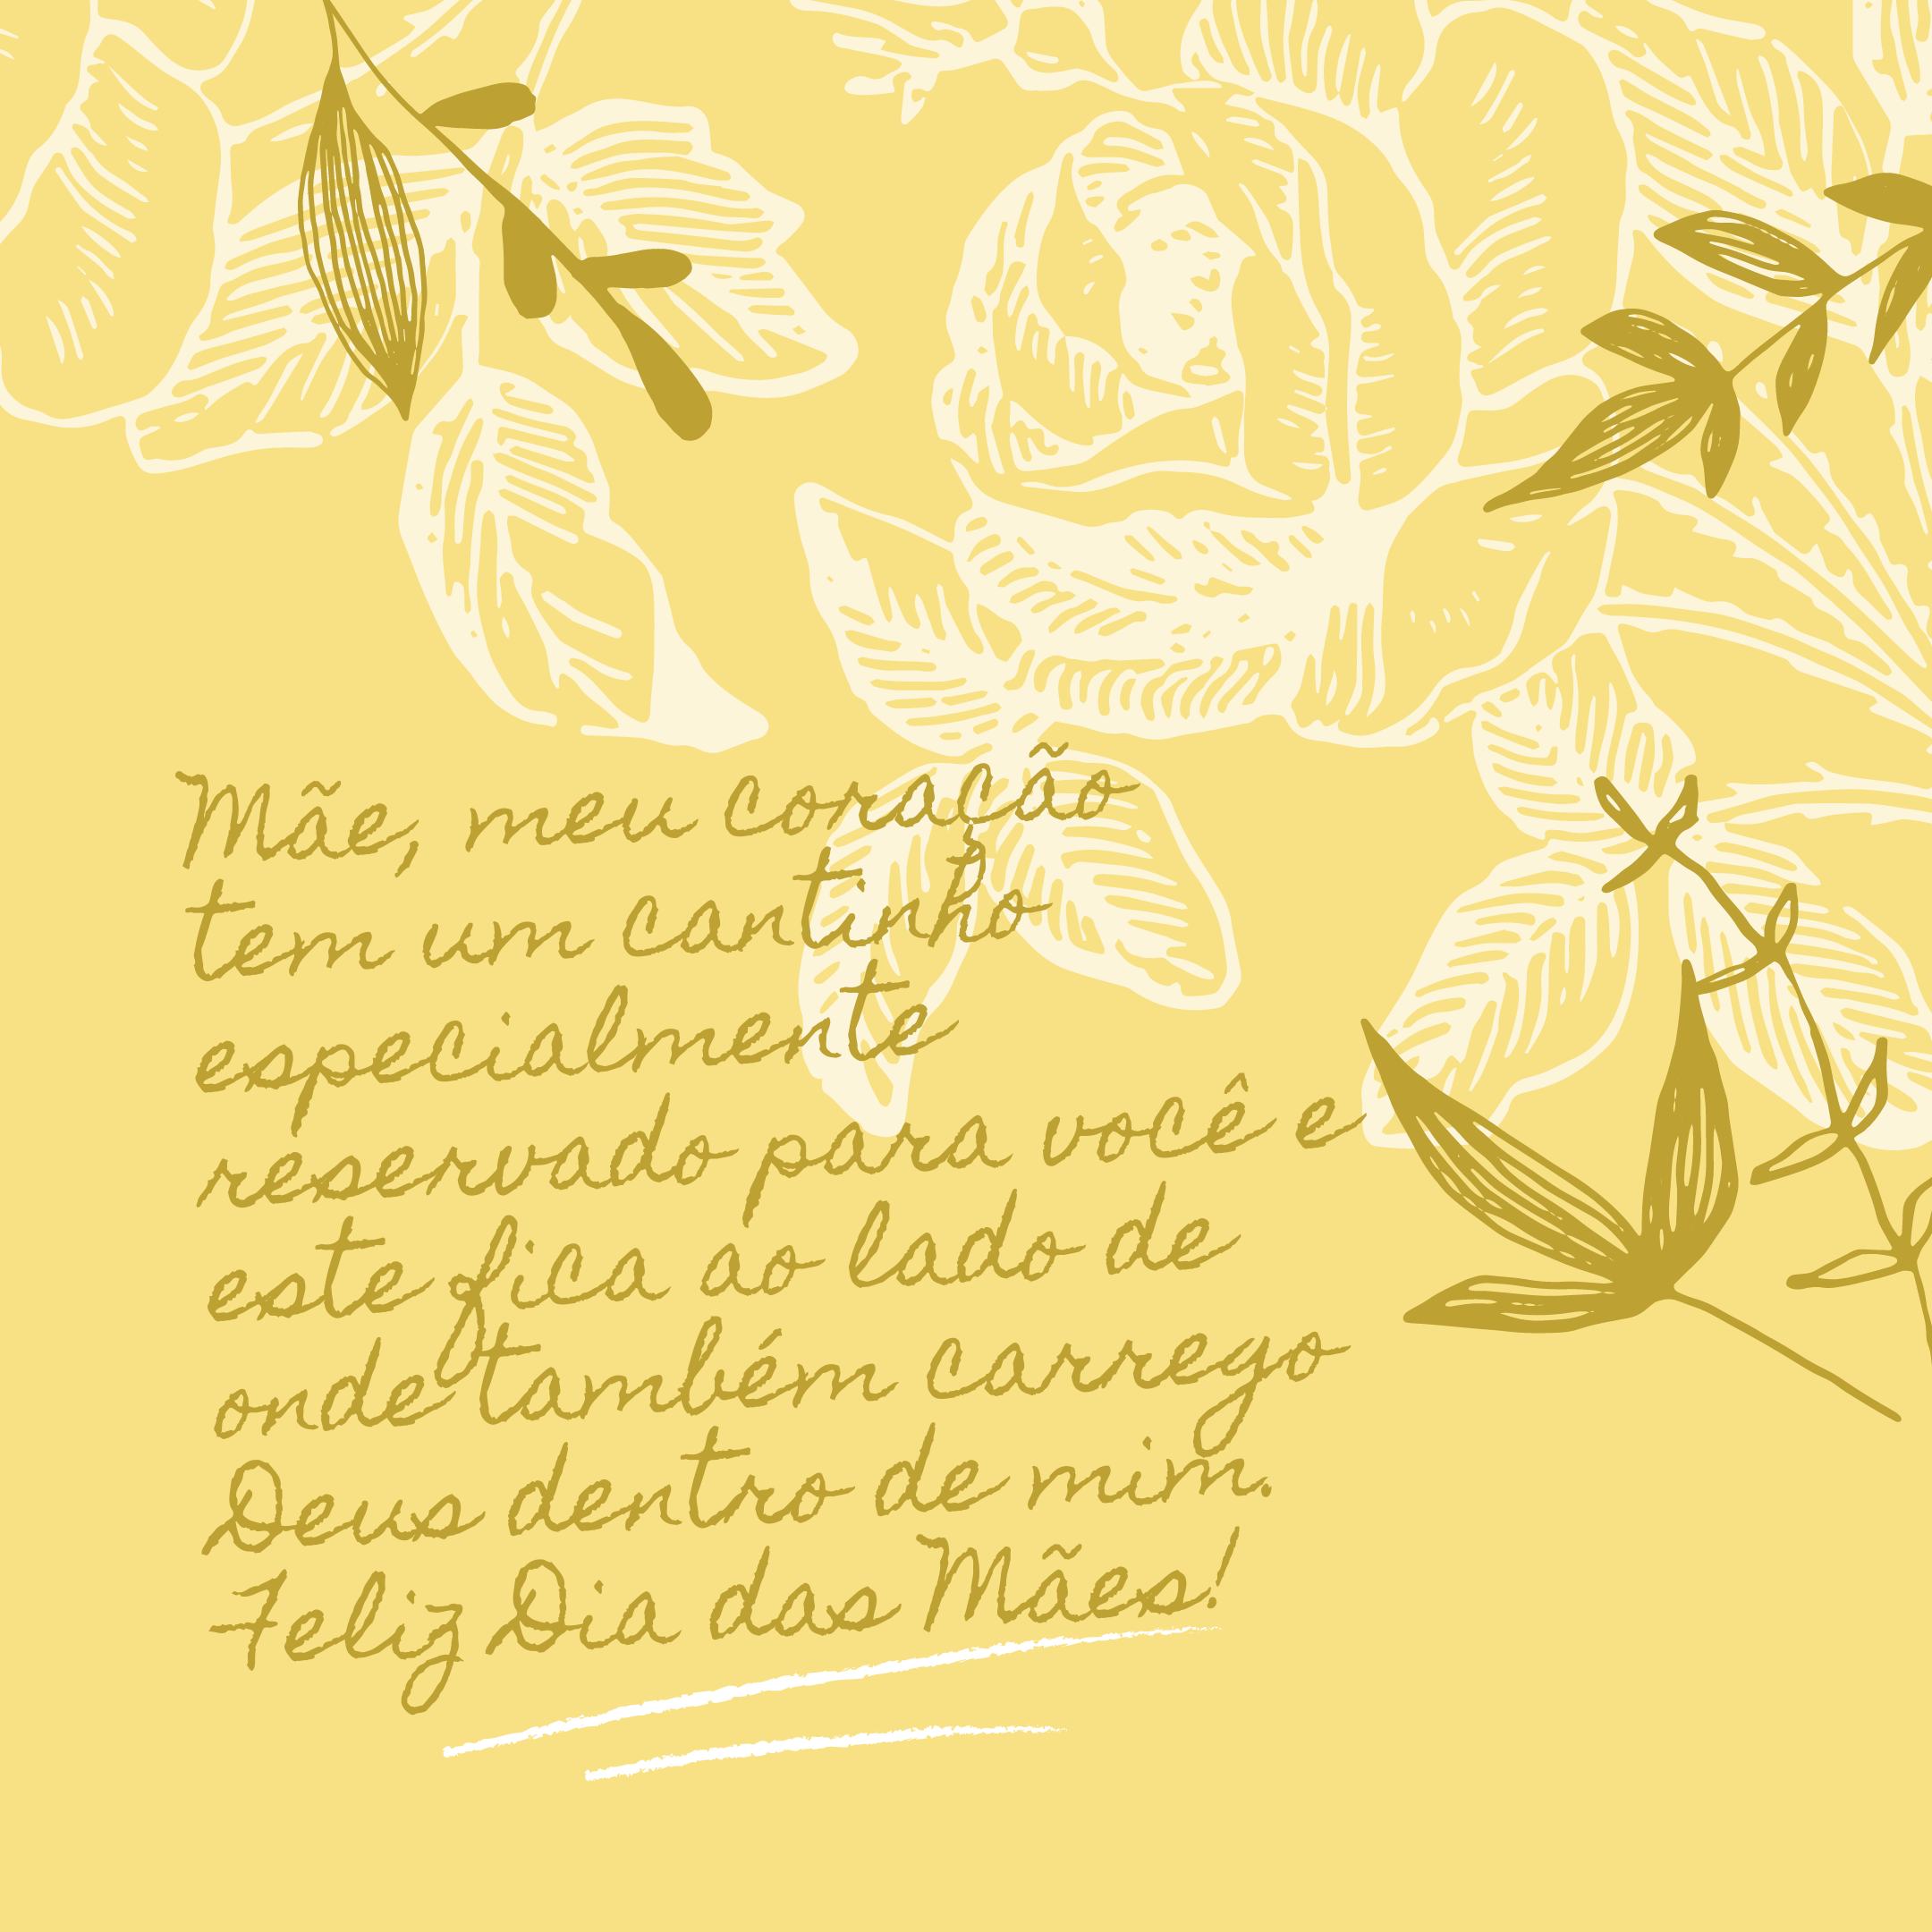 Mãe, meu coração
tem um cantinho
especialmente
reservado para você e
este fica ao lado de
onde também carrego
Deus dentro de mim.
Feliz Dia das Mães!